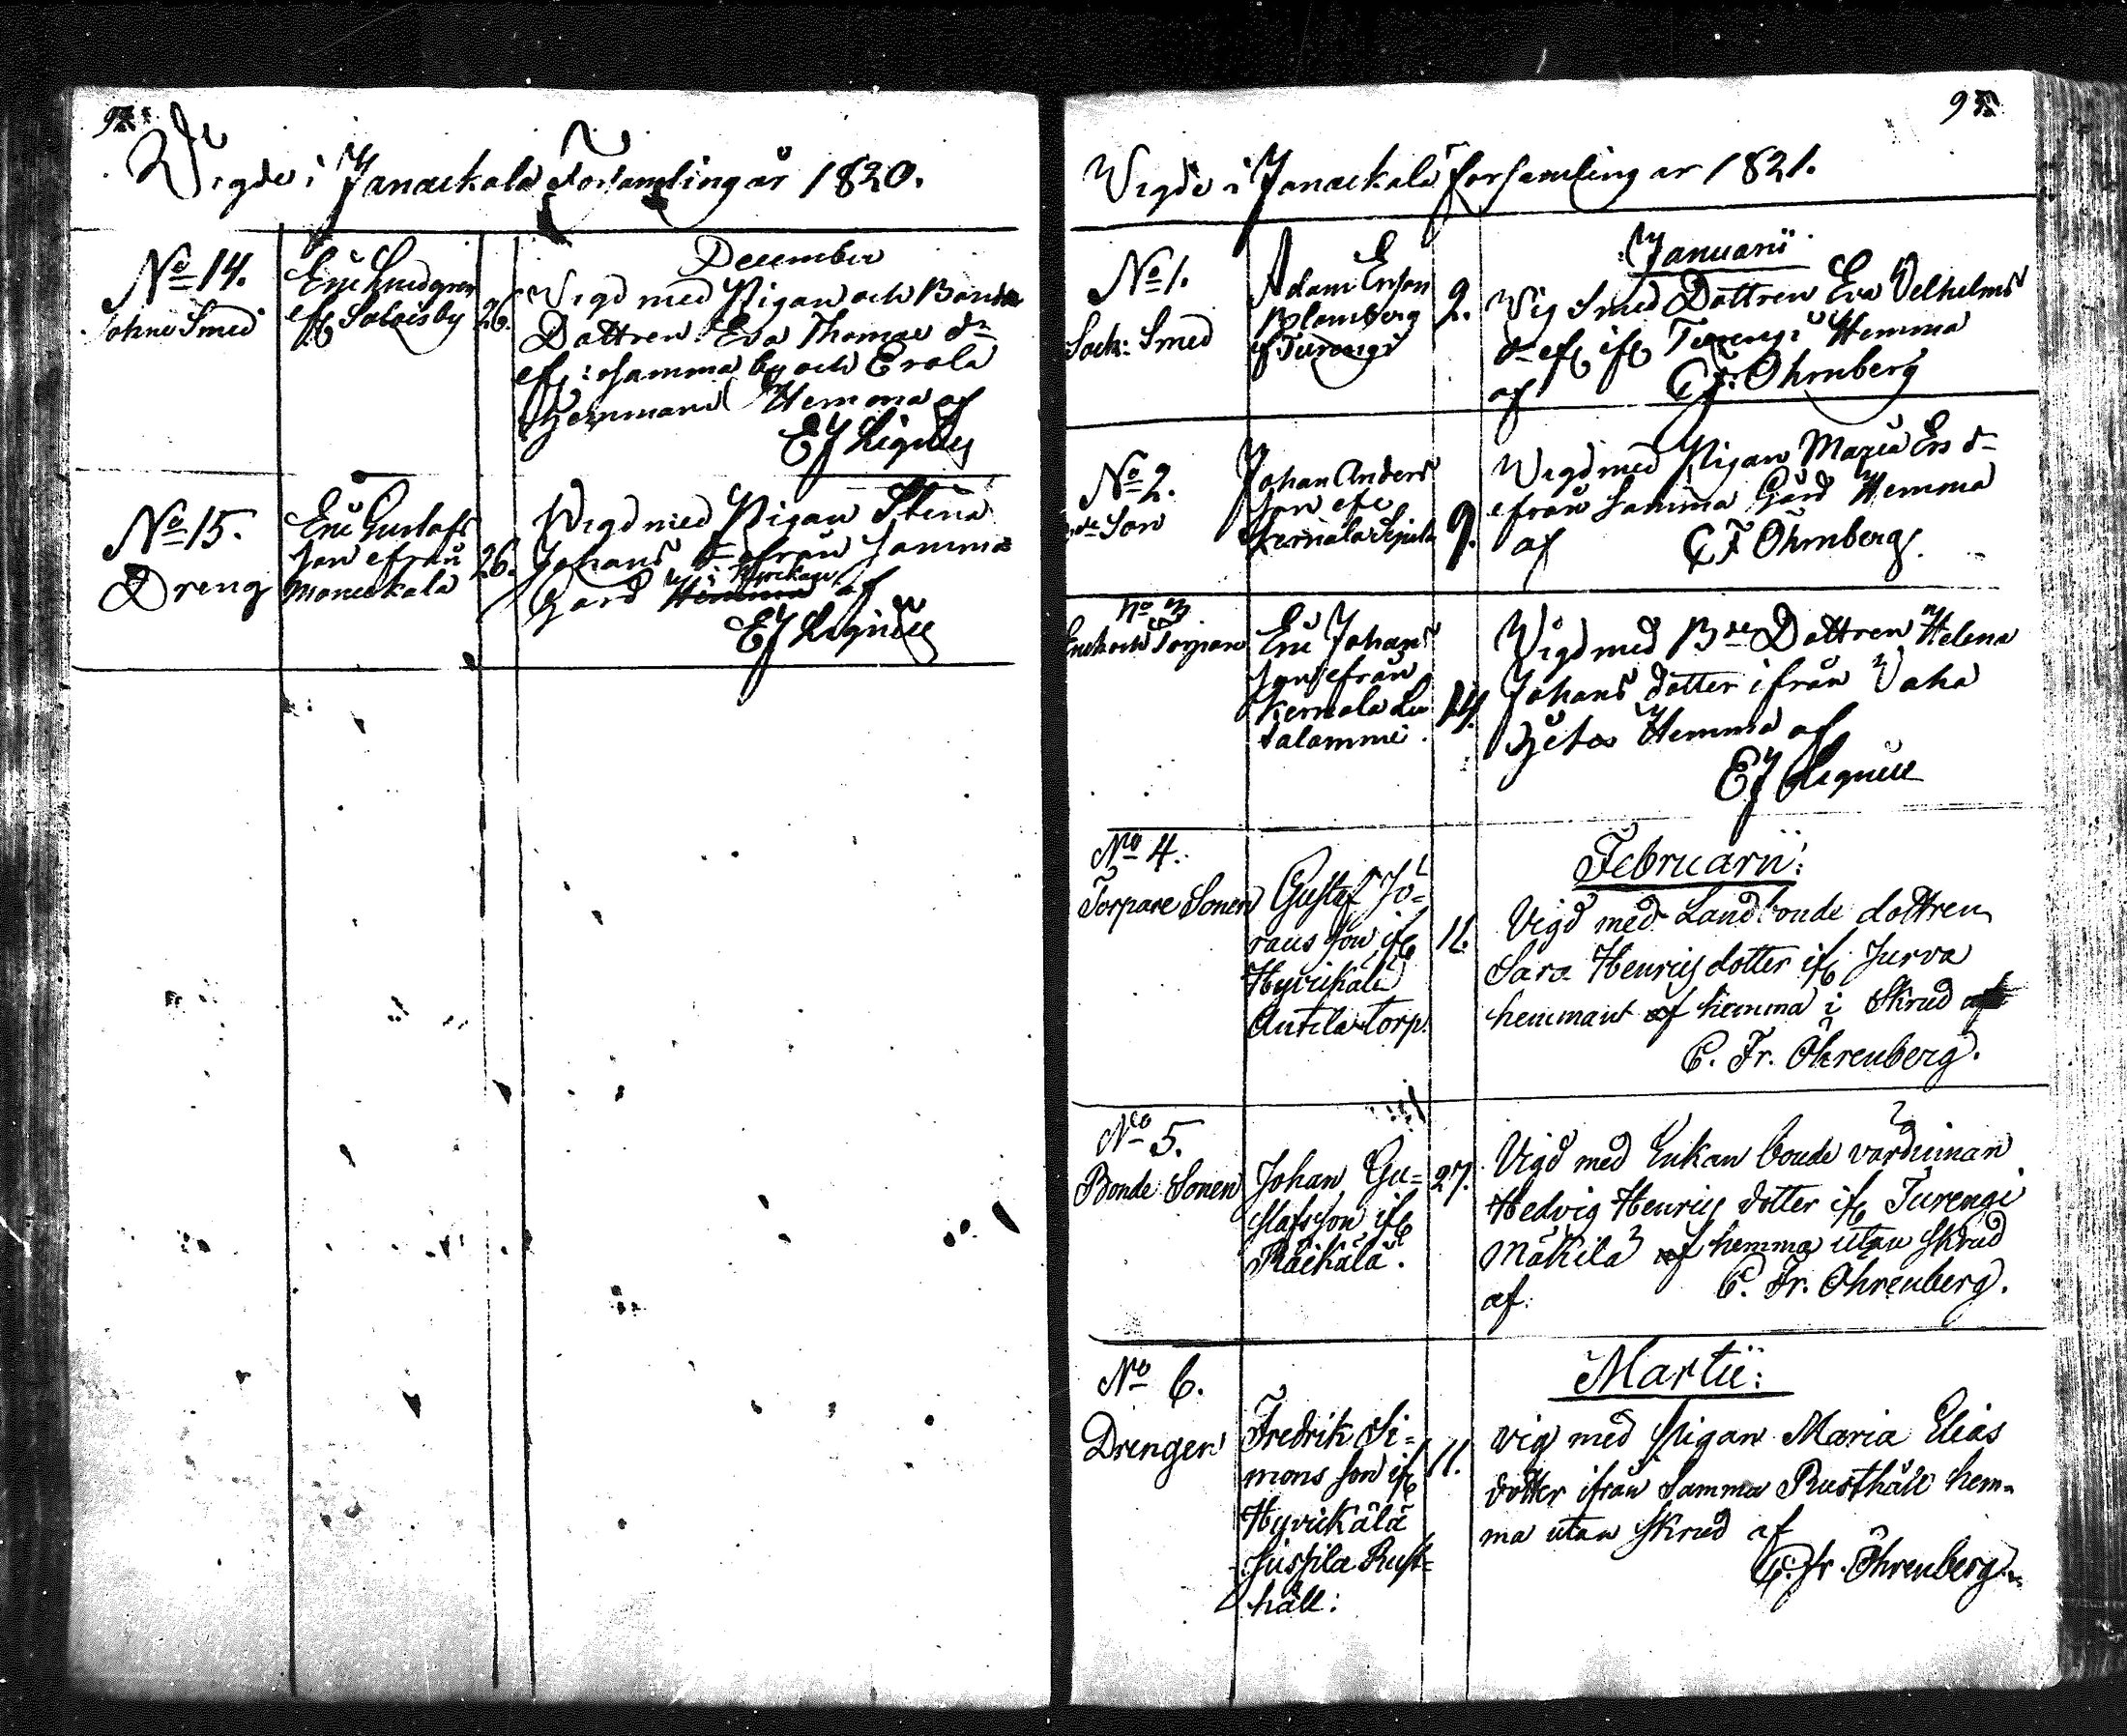 Vigde i Janackala Forsamling år 1820.
December
No 14.
Smed
Eric Lindgren
ef Saloisby
26.
Vigd med Pigan och Bonde
Dottren Eva Thomae dr
ef: samma by och Erola
Hemmand Hemma af
EJ
No 15.
Dreng
Eric Gustafs
son efrån
Monickala
26.
Vigd med Pigan Stina
Johans dr efrån samma
Gård Hemma i Kyrckan af
EJ
Vigde i Janackala forsamling år 1821.
Januarii
No 1.
Sock: Smed
Adam Ersson
Blomberg
if Turengi
9.
Vig Smed Dottren Eva Velhelms
dr ef if Turengi Hemma
af C F. Ohrnberg
No 2.
Son
Johan Anders
son efr
Kernala
9.
Vigd med Pigan Maria Ers dr
efrån Samma Gård Hemma
af C F Öhrnberg.
No 3
Enck och Torpare
Eric Johans
son efrån
Kernala Lu
talammi.
14.
Vigd med Bde Dottren Helena
Johans dotter ifrån Vaha
Hemma af
EJ
No 4.
Torpare Sonen
Gustaf Jö=
rans son ifr
Hyvickälä
Antila torp.
11.
Februarii:
Vigd med Landbonde dottren
Sara Henrics dotter ifr Jurva
hemmant af hemma i Skrud af
C. Fr. Öhrenberg.
No 5.
Bonde Sonen
Johan Gu=
stafsson ifr
Räikälä.
27.
Vigd med Enkan bonde värdinnan
Hedvig Henrics dotter ifr Turengi
Mäkilä af hemma utan Skrud
af. C. Fr. Öhrenberg.
No 6.
Drengen
Fredrik Si=
mons son ifr
Hyvickälä
Jussila Rust=
håll:
11.
Martii:
vig med Pigan Maria Elias
dotter ifrån Samma Rusthåll hem=
ma utan Skrud af
C. Fr. Öhrenberg.